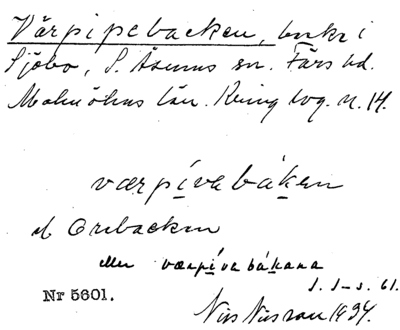 Värpipebacken, backe i
Sjöbo, S. Åsums sn. Färs hd.
Malmöhus län. Kring tog. n. 14.
værpíve báken
el Orebacken
eller værpíve bákana
S. 1-s. 61.
Nr 5601.
Nils Nilsson 1934.